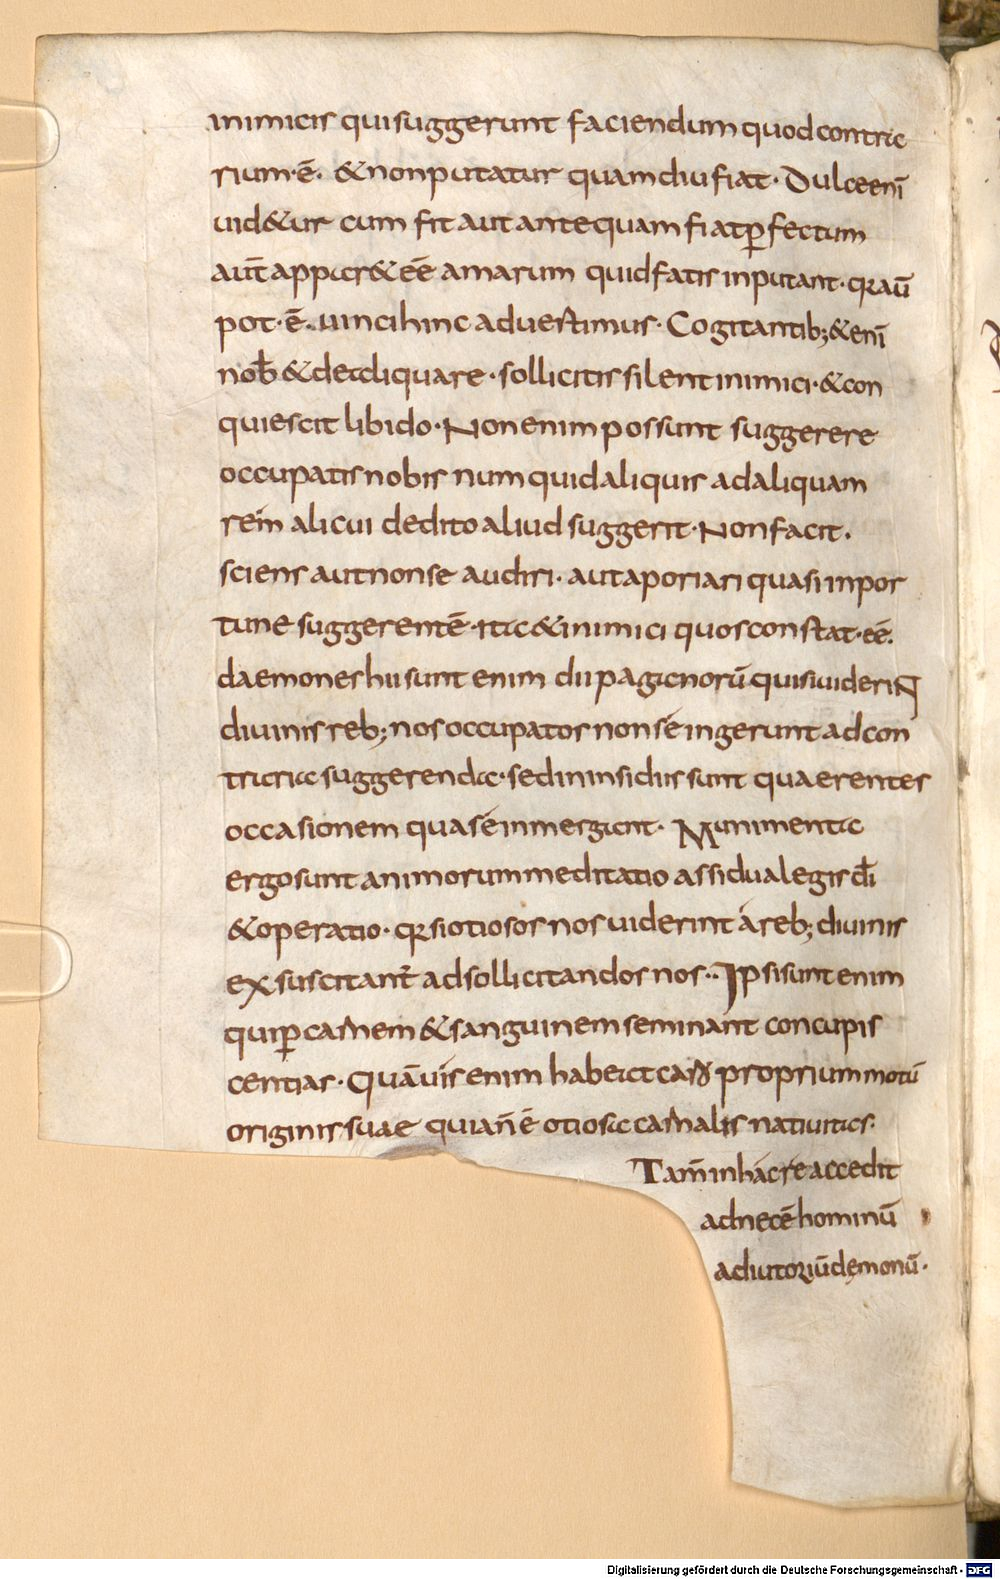 inimicis qui suggerunt faciendum quod contra
rium·ē· & non putatur quamdiu fiat· Dulce enī
uid&ur cum fit aut antequam fiat ꝑfectum
aūt apparer& eē amarum quid fatis inputant· qr aū
pot·ē· uinci hinc aduertimus· Cogitantib; & enī
nob̄ & de aliquare· sollicitis silent inimici· & con
quiescit libido· Non enim possunt suggerere
occupatis nobis numquid aliquis ad aliquam
rem alicui dedito aliud suggerit· Non facit·
sciens aut non se audiri· aut aporiari quasi inpor
tune suggerentē· ita & inimici quos constat·eē·
daemones hii sunt enim dii paganorū qui si uideriNt
diuinis reb; nos occupatos non se ingerunt ad con
traria suggerenda· sed in insidiis sunt quaerentes
occasionem qua se inmergant· Munimenta
ergo sunt animorum meditatio assidua legis dī
& operatio· qr si otiosos nos uiderint a reb; diuinis
exsuscitant̄ ad sollicitandos nos·· Ipsi sunt enim
qui ꝑ carnem & sanguinem seminant concupis
centias· Quāuis enim habeat caro proprium motū
originis suae quia n̄ ē otiosa carnalis natiuitas·
Tam̄ in hac re accedit
ad necē hominū
adiutoriū demonū·
Digitalisierung gefördert durch die Deutsche Forschungsgemeinschaft - DFG